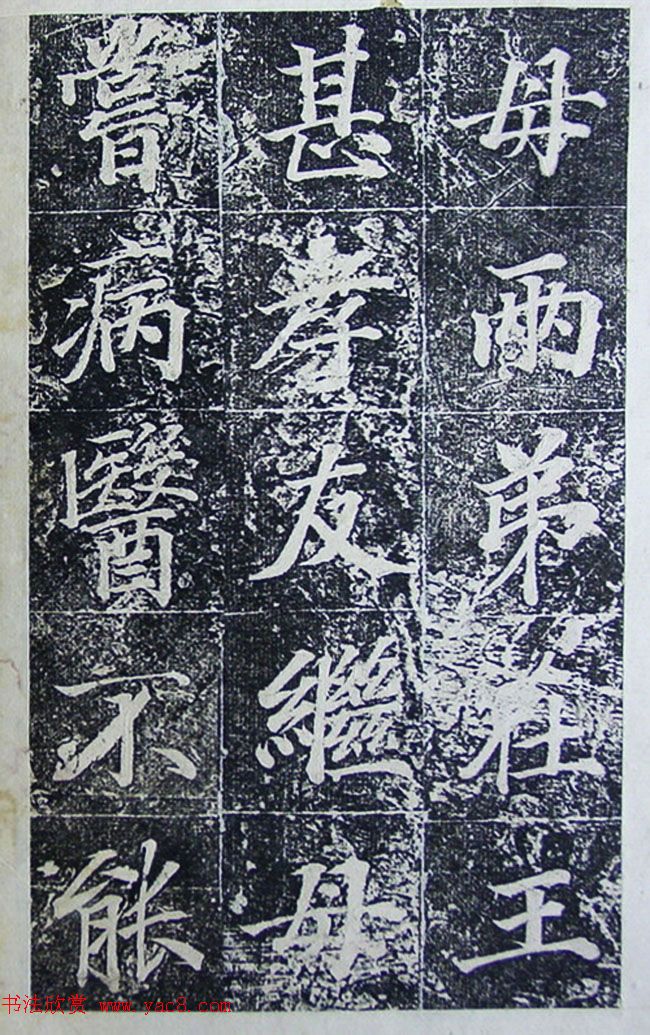 母兩弟在王
甚孝友繼母
嘗病醫不能
书法欣赏 www.yac8.com